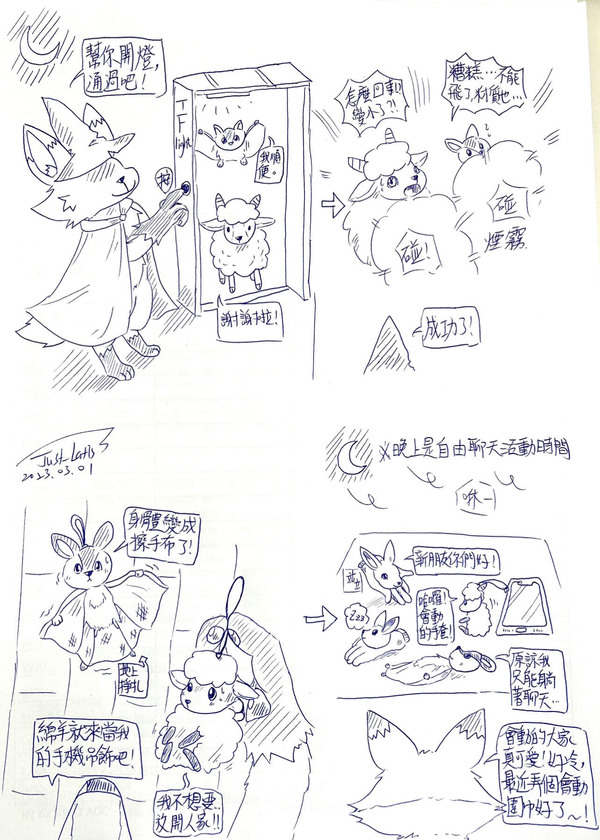 幫你開燈,
通過吧!
T
F
light
按
我順
便。
謝謝啦!
怎麼回事!
變小了?!
糟糕…不能
飛了,
碰!
碰!
煙霧
成功了!
Just_Latis
2023.03.01
身體變成
擦手布了!
地上
掙扎
綿羊就來當我
的手機吊飾吧!
我不想要..
放開人家!!
※晚上是自由聊天活動時間
咻—
新朋友你們好!
站立
哈囉!
會動
的手套!
Zzz
原諒我
只能躺
著聊天…
會動的大家
真可愛!好冷,
最近弄個會動
圍巾好了~!